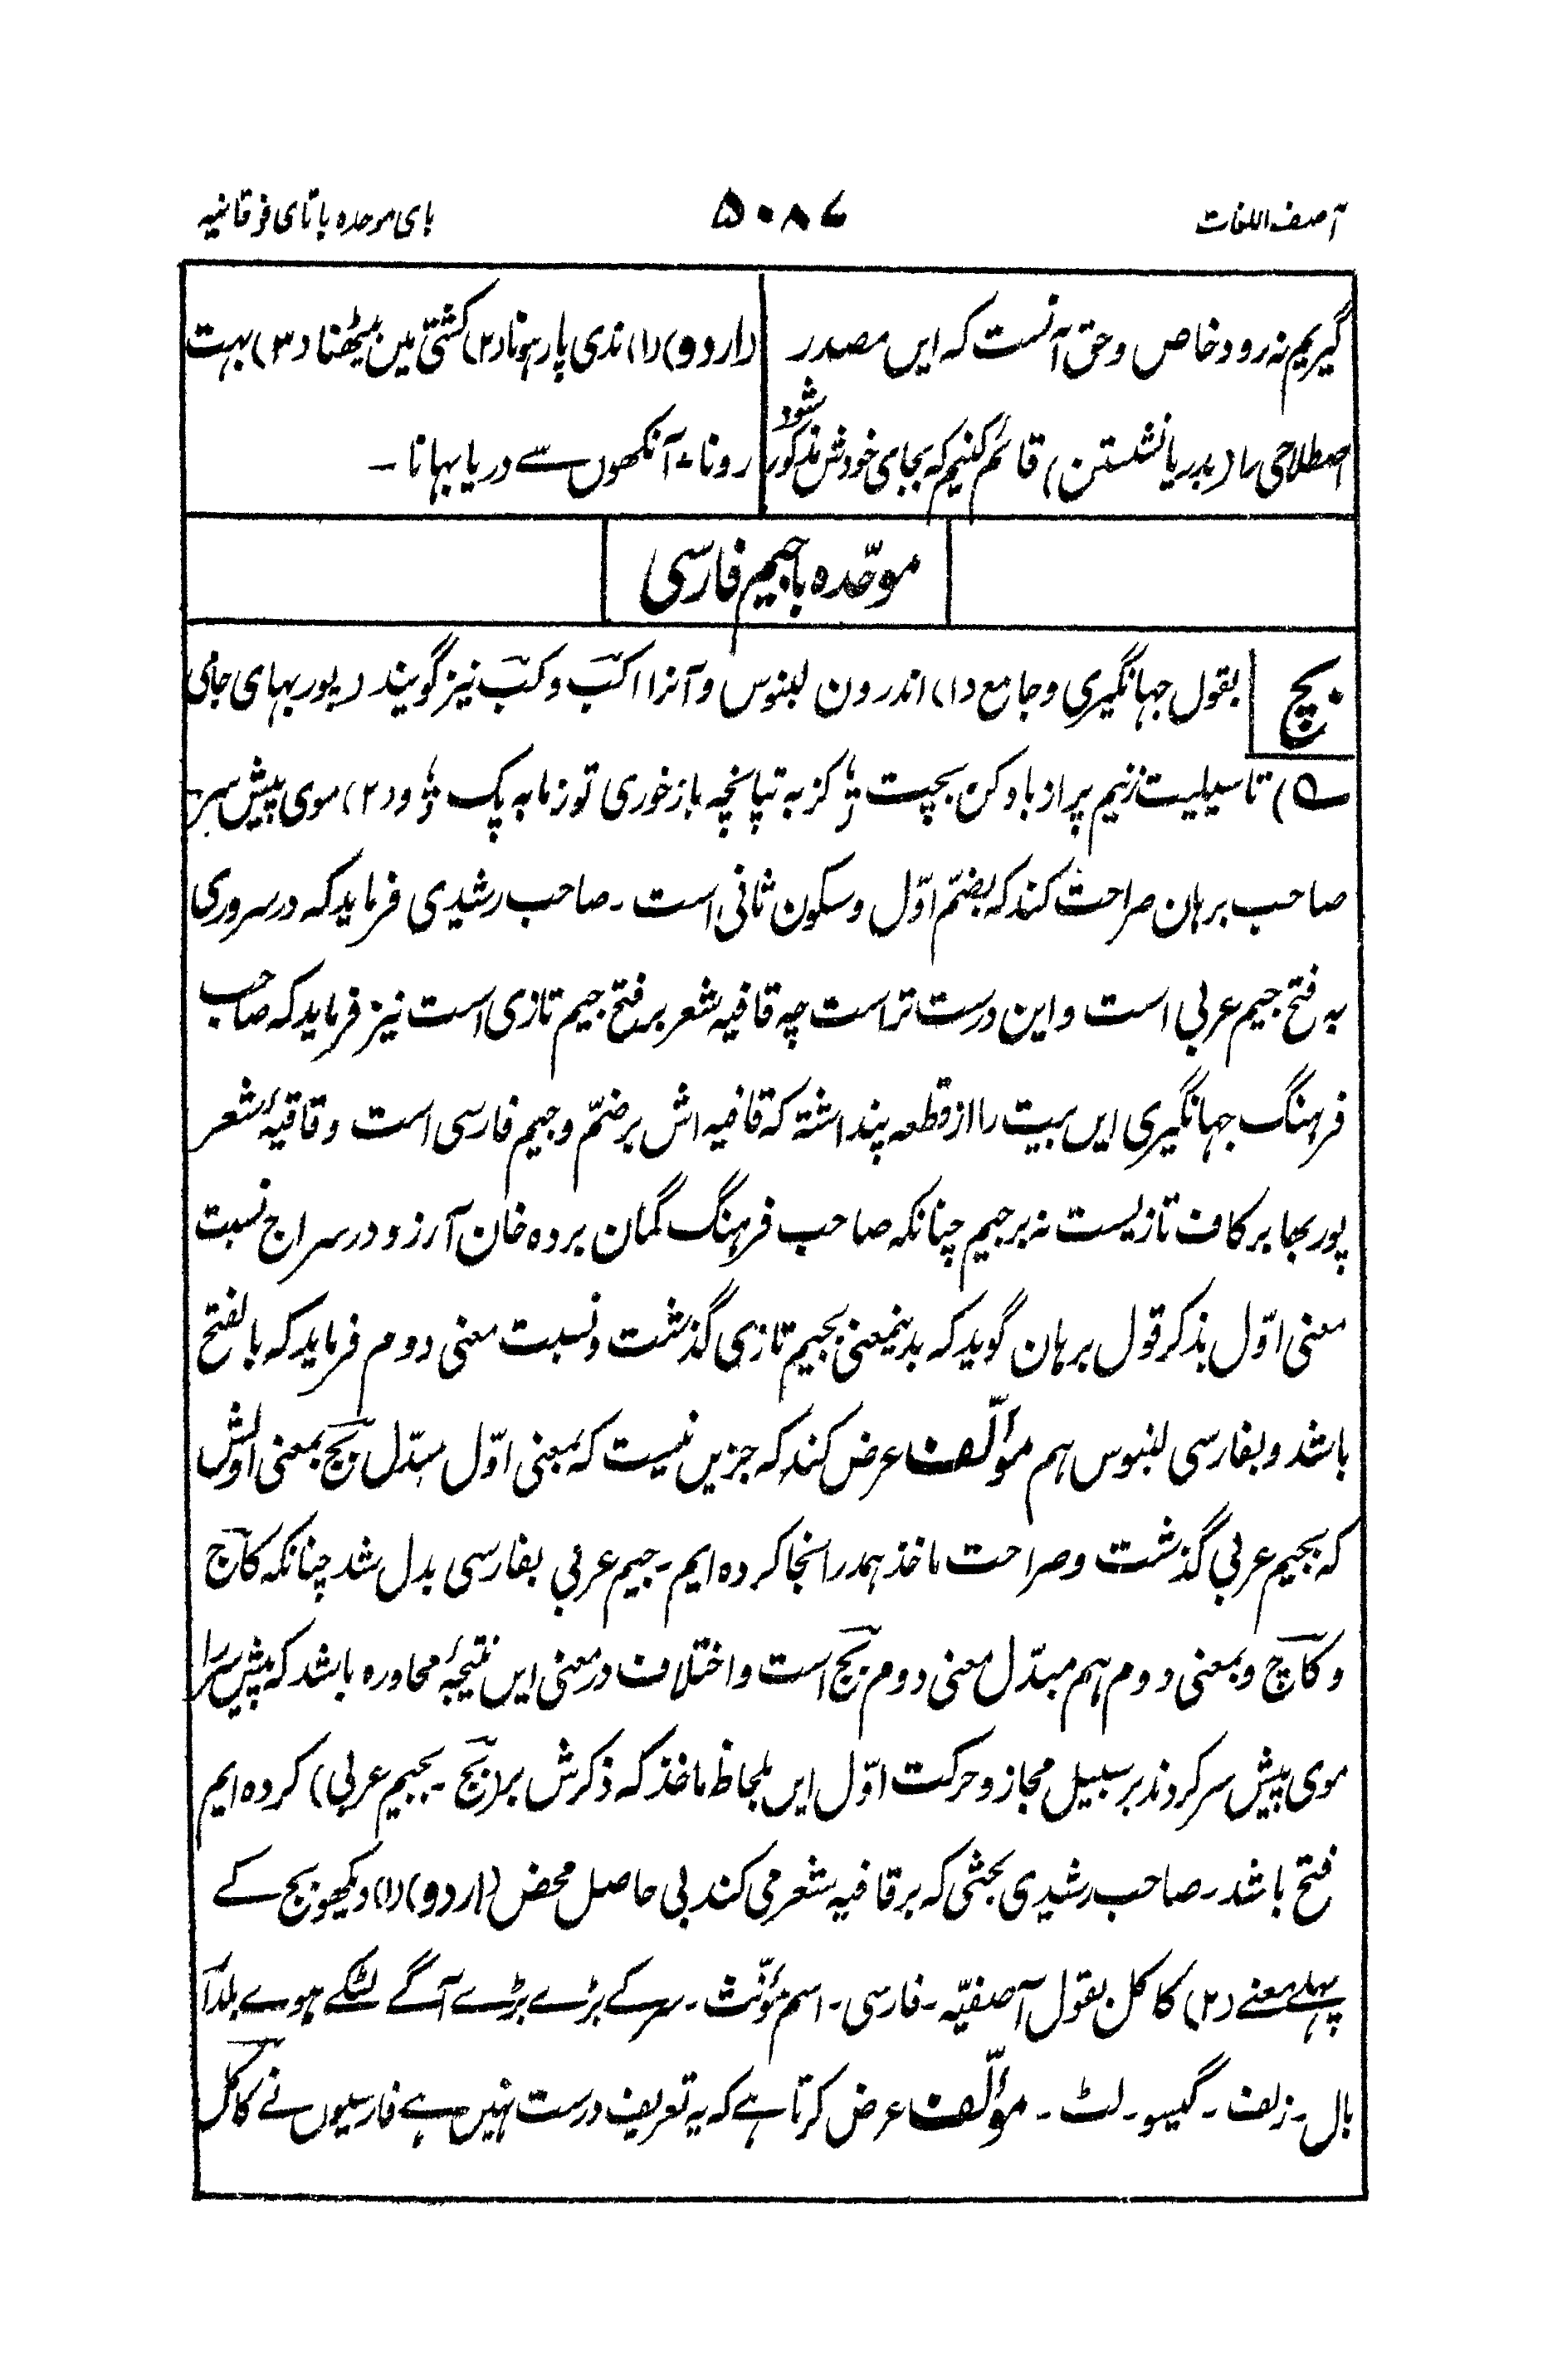 آصف اللغات
۵۰۸۷
بای موحده با تای فوقانیه
گیریم نه رود خاص و حق آنست که ایں مصدر
اصطلاحی را (بدریا نشستن) قائم کنیم که بجای خودش مذکور شود
(اردو) (۱) ندی پار ہونا (۲) کشتی میں بیٹھنا (۳) بہت
رونا۔ آنکھوں سے دریا بہانا۔
موحّده با جیم فارسی
بچ
بقول جهانگیری و جامع (۱) اندرون لبنوس و آنرا اکب و کب نیز گویند (پوربهای جامی
ـه) تا سیلیت زنیم پر از باد کن بچت ؛ کز به تپانچه باز خوری تو زما به پک ؛ و (۲) موی پیش سر
صاحب برهان صراحت کند که بضمّ اوّل و سکون ثانی است۔ صاحب رشیدی فرماید که در سروری
به فتح جیم عربی است و این درست تراست چه قافیه شعر بر فتح جیم تازی است نیز فرماید که صاحب
فرهنگ جهانگیری ایں بیت را از قطعه پنداشته که قافیه اش بر ضمّ و جیم فارسی است و قافیۀ شعر
پوربها بر کاف تازیست نه بر جیم چنانکه صاحب فرهنگ گمان برده خان آرزو در سراج نسبت
معنی اوّل بذکر قول برهان گوید که بدینمعنی بجیم تازی گذشت و نسبت معنی دوم فرماید که بالفتح
باشد و بفارسی لنبوس هم مؤلّف عرض کند که جزیں نیست که بمعنی اوّل مبدّل بج بمعنی اولش
که بجیم عربی گذشت و صراحت ماخذ همدرانجا کرده ایم۔ جیم عربی بفارسی بدل شد چنانکه کاج
و کاچ و بمعنی دوم هم مبدّل معنی دوم بج است و اختلاف در معنی ایں نتیجۀ محاوره باشد که پیش سر را
موی پیش سر کردند بر سبیل مجاز و حرکت اوّل ایں بلحاظ ماخذ که ذکرش بر (بج۔ بجیم عربی) کرده ایم
فتح باشد۔ صاحب رشیدی بحثی که بر قافیه شعر می کند بی حاصل محض (اردو) (۱) دیکھو بج کے
پہلے معنے (۲) کاکل بقول آصفیّہ۔ فارسی۔ اسم مؤنّث۔ سر کے بڑے بڑے آگے لٹکے ہوے بلدار
بال۔ زلف۔ گیسو۔ لٹ۔ مؤلّف عرض کرتا ہے کہ یہ تعریف درست نہیں ہے فارسیوں نے کاکل